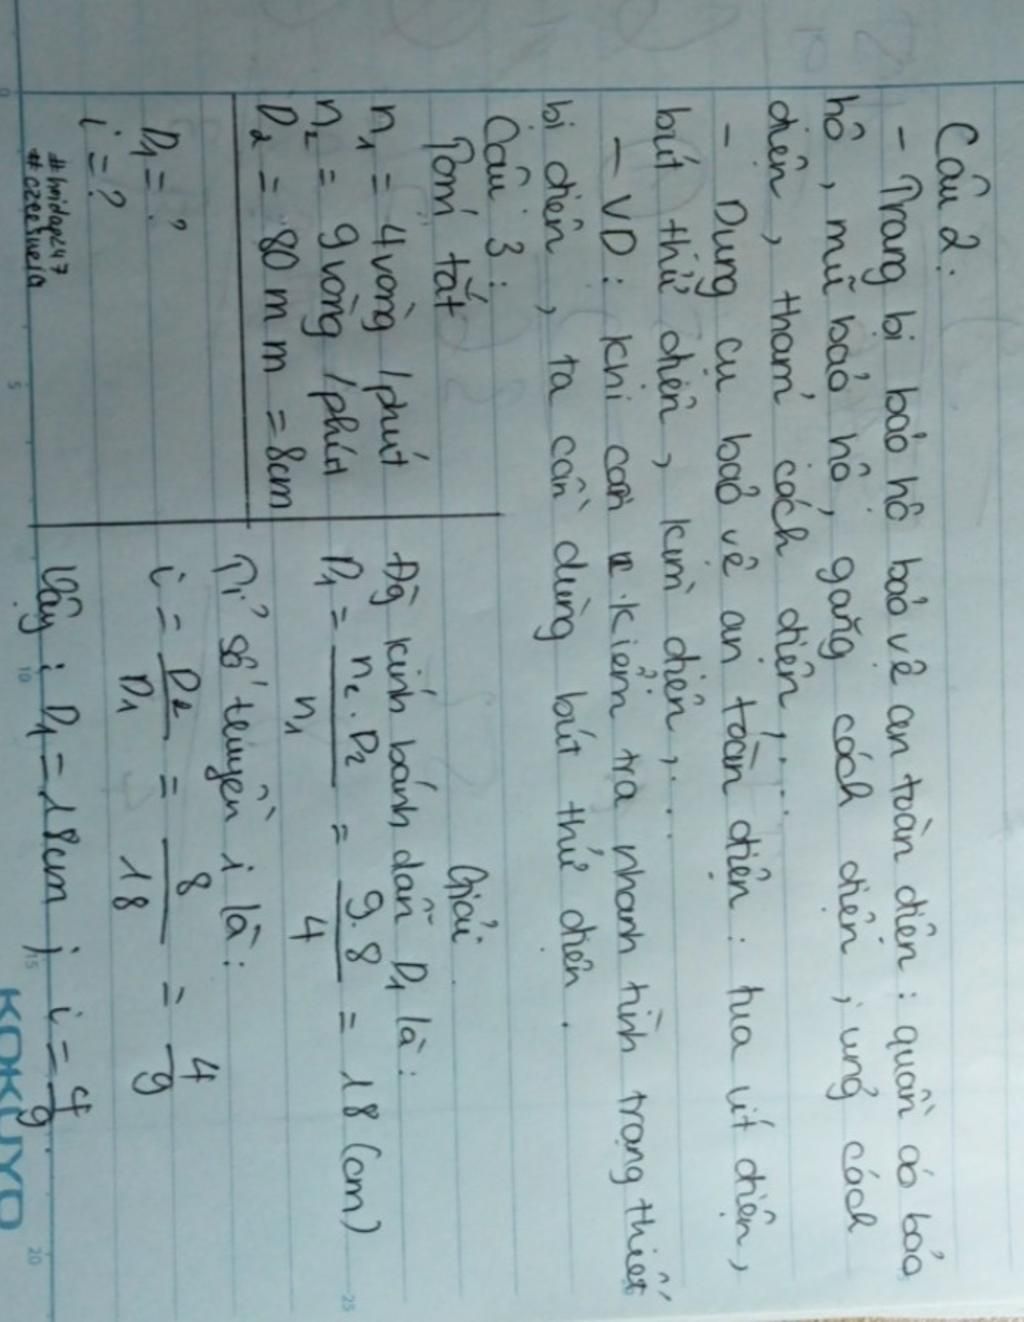 Câu 2.
- Trang bị bảo hộ bảo vệ an toàn điện : quần áo bảo
hộ, mũ bảo hộ, găng cách điện, ủng cách
điện, thảm cách điện,...
- Dụng cụ bảo vệ an toàn điện : tua vít điện,
bút thử điện, kìm điện,...
- VD: khi cần kiểm tra nhanh tình trạng thiết
bị điện, ta cần dùng bút thử điện.
Câu 3:
Tóm tắt
n1 = 4 vòng /phút
n2 = 9 vòng /phút
D2 = 80 mm = 8cm
D1 = ?
i = ?
#hoidap247
Giải
Đg kính bánh dẫn D1 là:
D1 = n2.D2 / n1 = 9.8 / 4 = 18 (cm)
Tỉ số truyền i là:
i = D2 / D1 = 8 / 18 = 4 / 9
Vậy : D1 = 18cm ; i = 4 / 9
0 5 10 15 20 25
KOKUYO